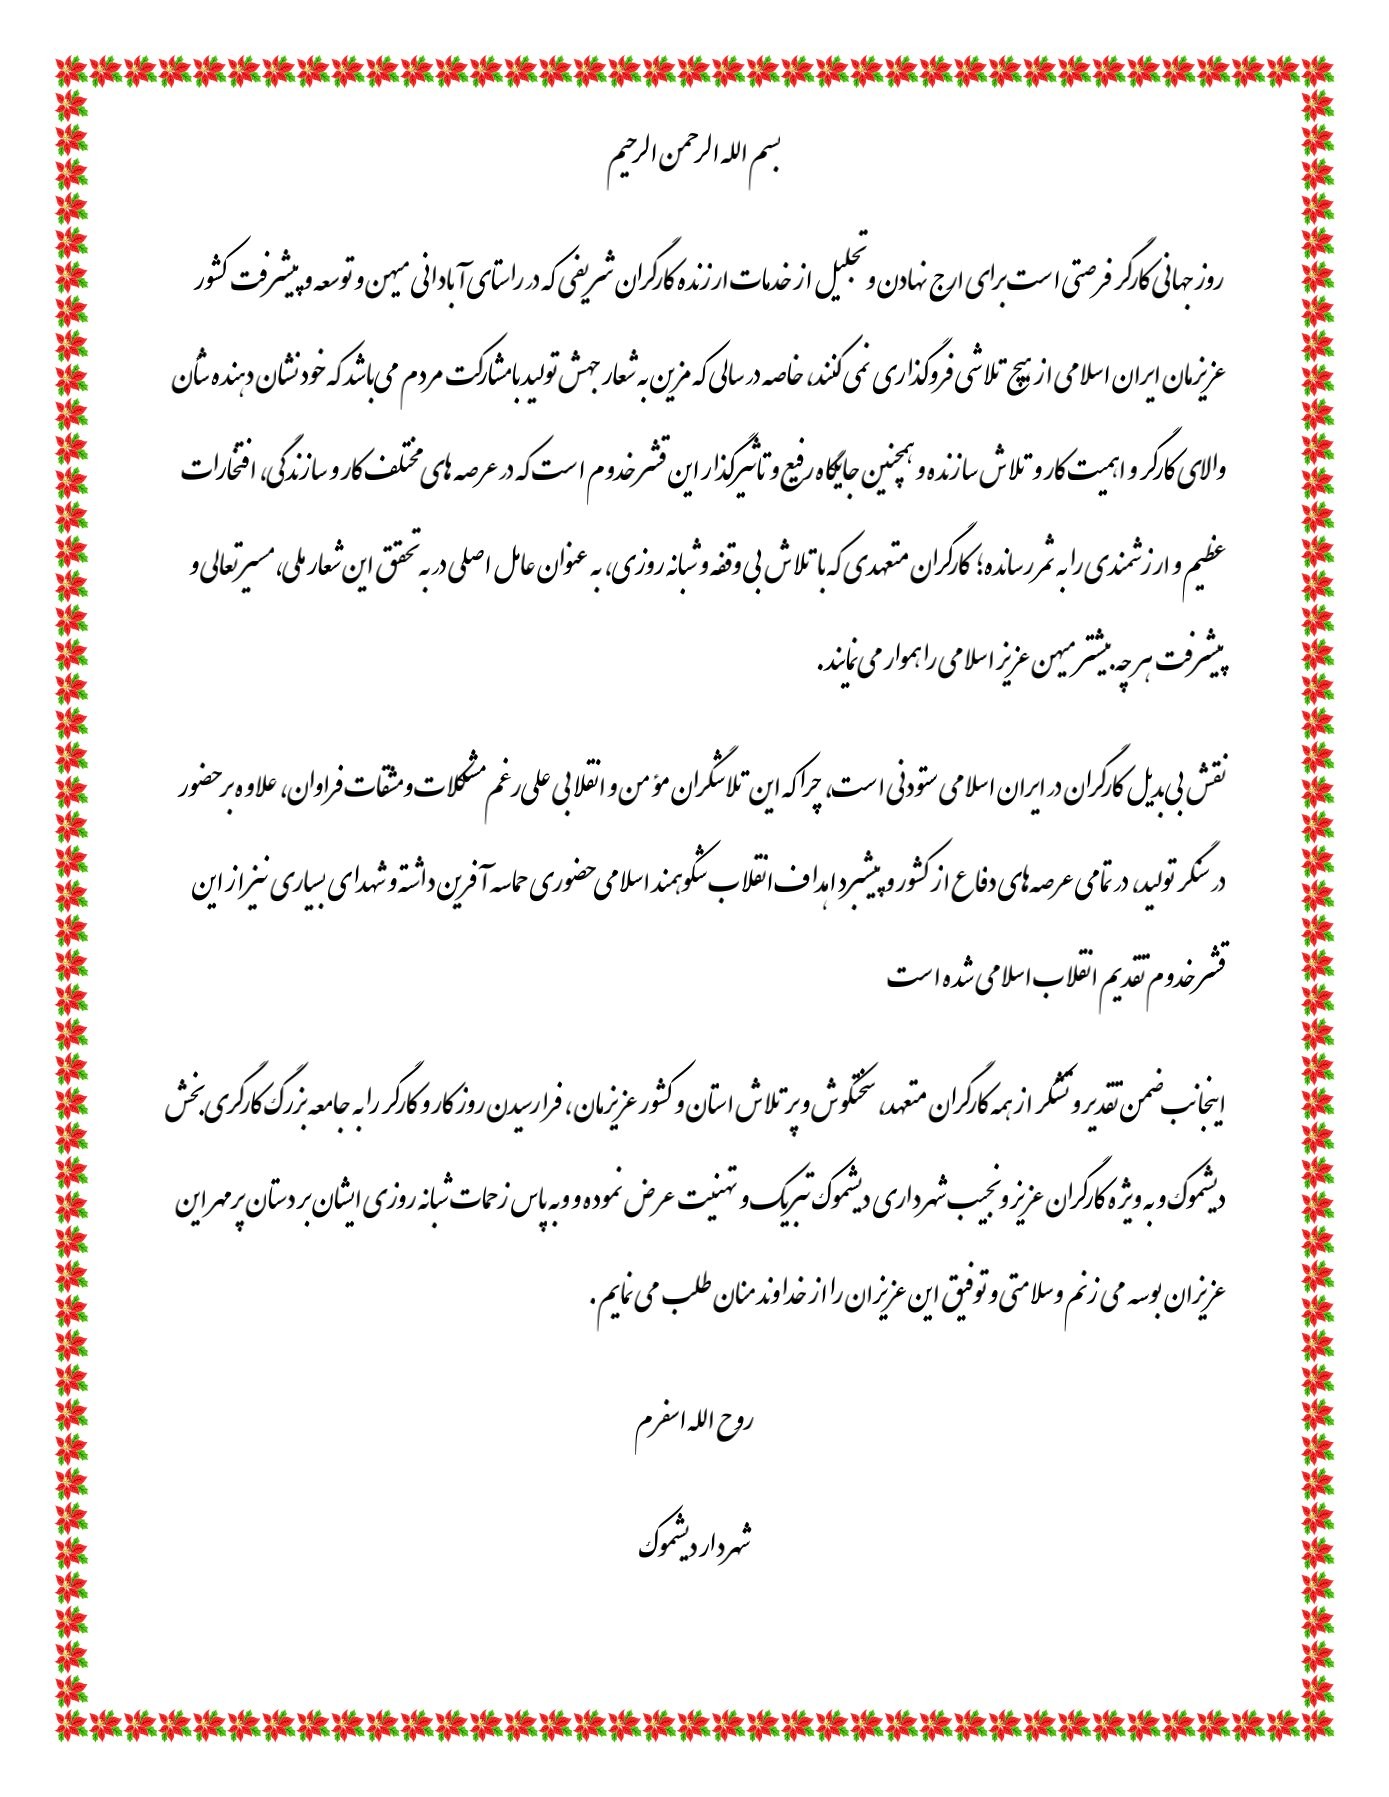 بسم الله الرحمن الرحیم
روز جهانی کارگر فرصتی است برای ارج نهادن و تجلیل از خدمات ارزنده کارگران شریفی که در راستای آبادانی میهن و توسعه و پیشرفت کشور
عزیزمان ایران اسلامی از هیچ تلاشی فروگذاری نمی کنند، خاصه در سالی که مزین به شعار جهش تولید با مشارکت مردم می‌باشد که خود نشان دهنده شأن
والای کارگر و اهمیت کار و تلاش سازنده و همچنین جایگاه رفیع و تاثیرگذار این قشر خدوم است که در عرصه های مختلف کار و سازندگی، افتخارات
عظیم و ارزشمندی را به ثمر رسانده؛ کارگران متعهدی که با تلاش بی وقفه و شبانه روزی، به عنوان عامل اصلی در به تحقق این شعار ملی، مسیر تعالی و
پیشرفت هرچه بیشتر میهن عزیز اسلامی را هموار می نمایند.
نقش بی بدیل کارگران در ایران اسلامی ستودنی است، چرا که این تلاشگران مؤمن و انقلابی علی رغم مشکلات و مشقات فراوان، علاوه بر حضور
در سنگر تولید، در تمامی عرصه های دفاع از کشور و پیشبرد اهداف انقلاب شکوهمند اسلامی حضوری حماسه آفرین داشته و شهدای بسیاری نیز از این
قشر خدوم تقدیم انقلاب اسلامی شده است
اینجانب ضمن تقدیر و تشکر از همه کارگران متعهد، سختکوش و پر تلاش استان و کشور عزیزمان، فرارسیدن روز کار و کارگر را به جامعه بزرگ کارگری بخش
دیشموک و به ویژه کارگران عزیز و نجیب شهرداری دیشموک تبریک و تهنیت عرض نموده و وبه پاس زحمات شبانه روزی ایشان بر دستان پر مهر این
عزیزان بوسه می زنم و سلامتی و توفیق این عزیزان را از خداوند منان طلب می نمایم.
روح الله اسفرم
شهردار دیشموک